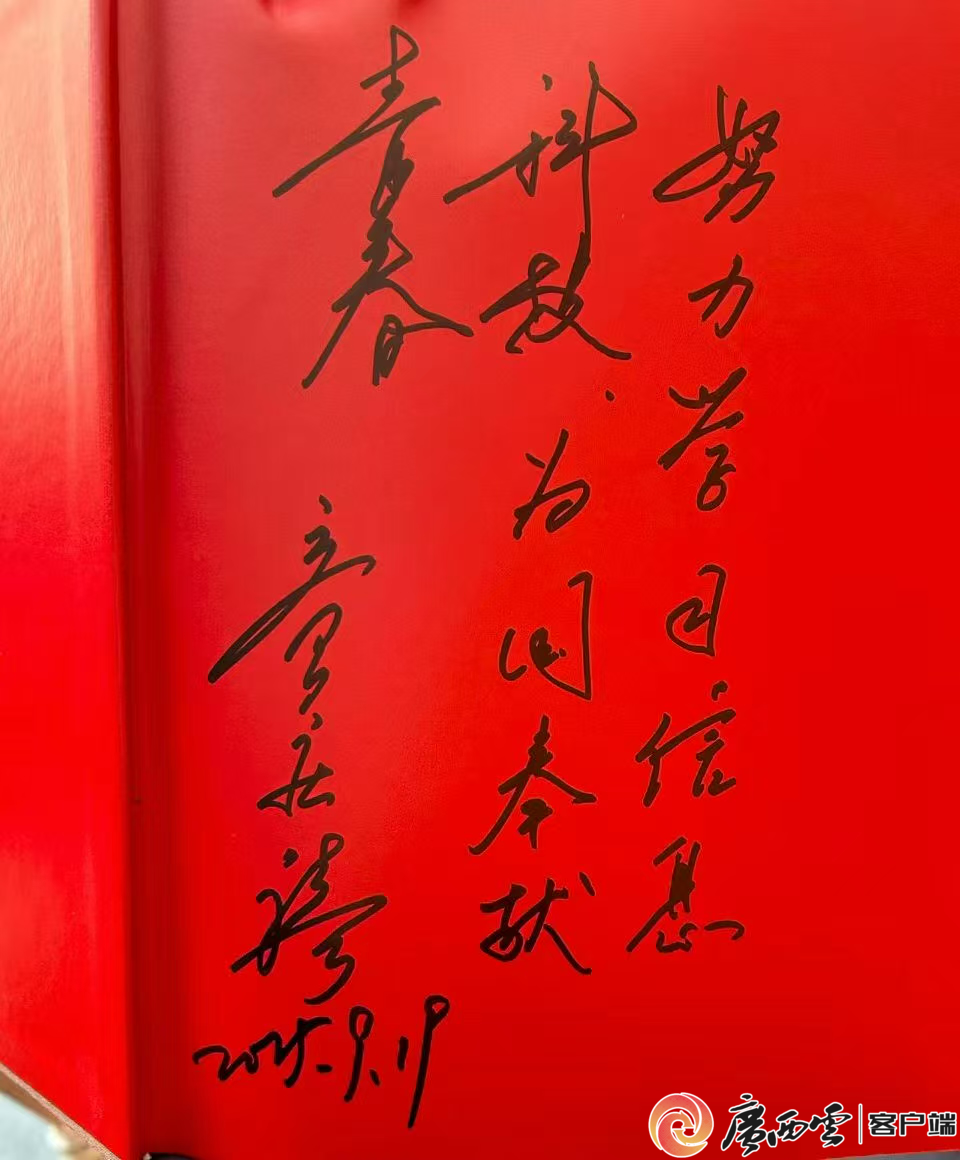 努力学习信息
科技、为国奉献
青春
童庆禧
2025.9.19
廣西雲|客户端